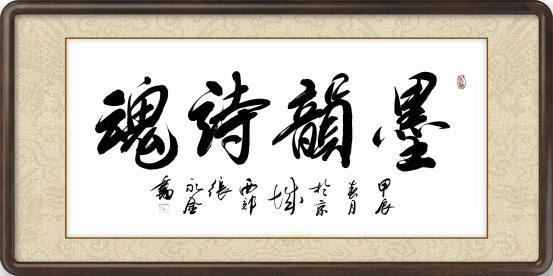 墨韻詩魂
甲辰春月於京城西郊張永金書